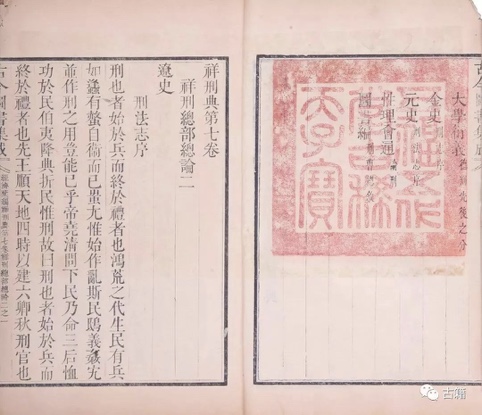 大學衍義
金史
元史
性理會通
圖書編
五福五代堂古稀天子寶
祥刑典第七卷
祥刑總部總論二
遼史
刑法志序
刑也者始於兵而終於禮者也鴻荒之代生民有兵
如蠭有螫自衛而已蚩尤惟始作亂斯民鴟義姦宄
並作刑之用豈能已乎帝堯清問下民乃命三后恤
功於民伯夷降典折民惟刑故曰刑也者始於兵而
終於禮者也先王順天地四時以建六卿秋刑官也
古今圖書集成